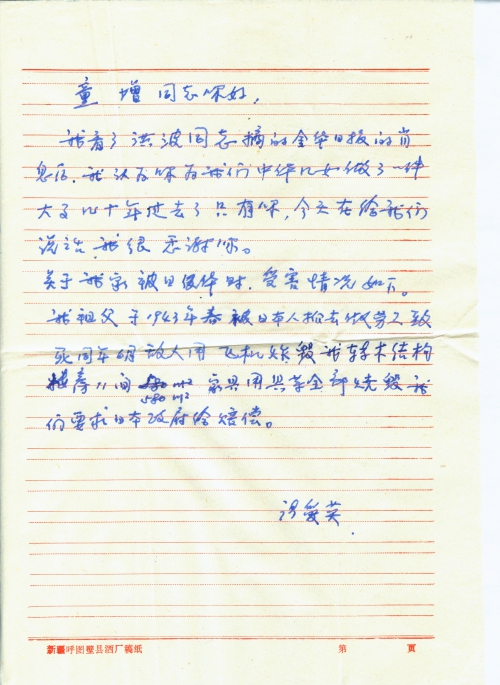 童增同志你好，
我看了洪波同志摘的金华日报的肖
息后，我认为你为我们中华儿女做了一件
大事几十年过去了只有你，今天在给我们
说话，我很感谢你。
关于我家被日侵华时，受害情况如下。
我祖父于1943年春被日本人抓去做劳工致
死同年6月敌人用飞机炸毁我砖木结构
房11间 580m2
家具用具等全部烧毁我
们要求日本政府给赔偿。
爱英
新疆呼图壁县酒厂稿纸 第 页